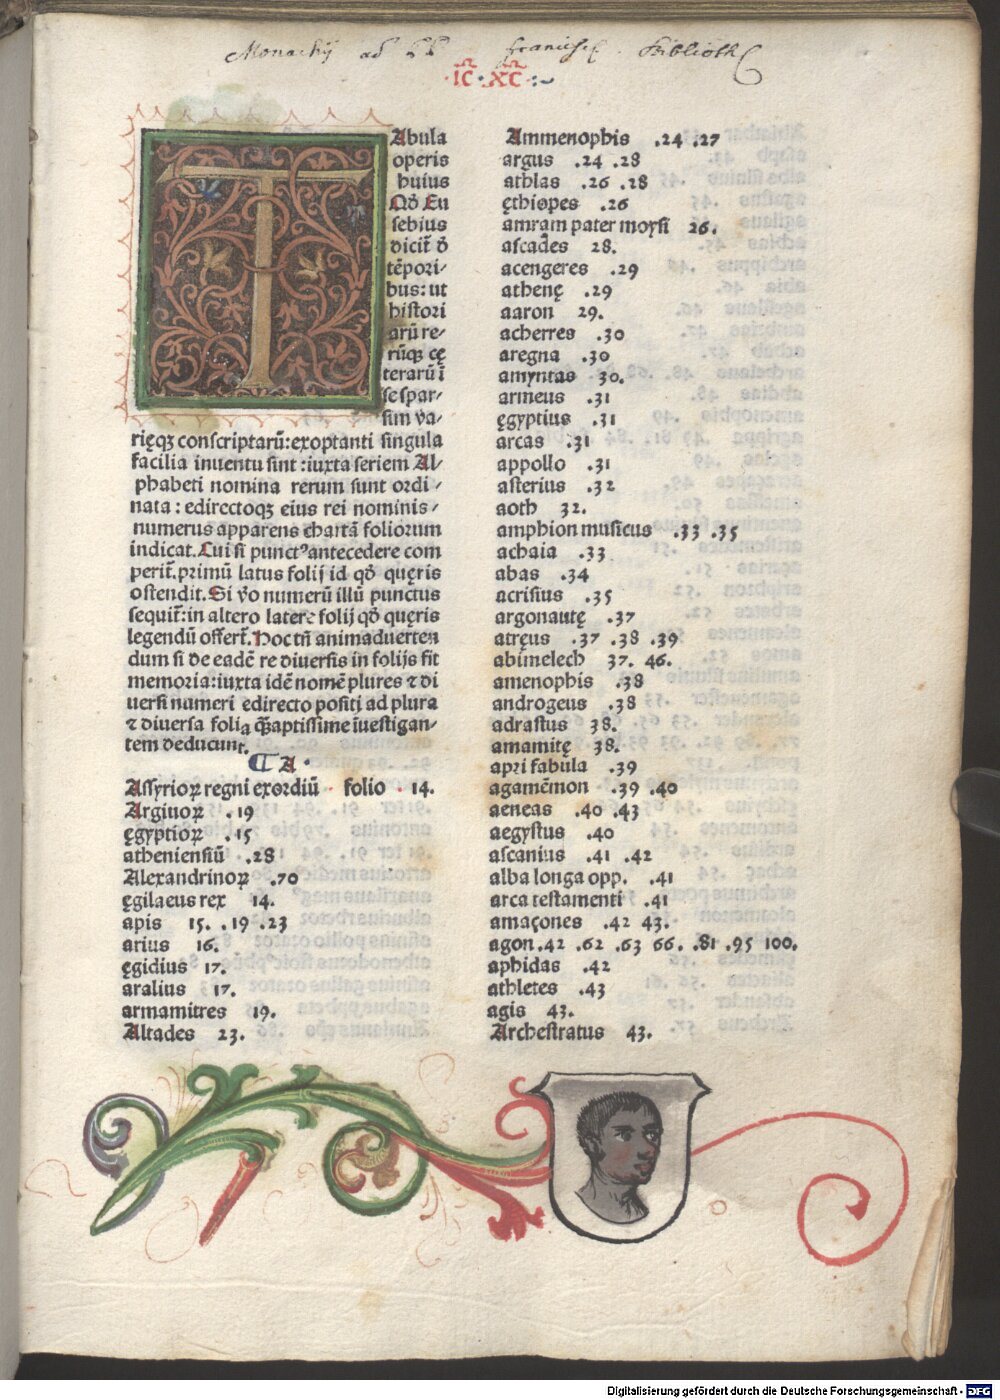 Monachij ad PP francisc. Biblioth
IC·XC·:~
TAbula
operis
huius
Qđ Eu
sebius
dicit̃ đ
tẽpori⸗
bus: ut
histori
arũ re⸗
rũq̃ cę
terarũ ĩ
se spar⸗
sim va⸗
rięqꝫ conscriptarũ: exoptanti singula
facilia inuentu sint: iuxta seriem Al⸗
phabeti nomina rerum sunt ordi⸗
nata: edirectoqꝫ eius rei nominis⸗
numerus apparens chartã foliorum
indicat. Cui si punctꝰ antecedere com
perit̃. primũ latus folij id qđ quęris
ostendit. Si v̊o numerũ illũ punctus
sequit̃: in altero latere folij qđ quęris
legendũ offert̃. Hoc tñ animaduerten
dum si de eadẽ re diuersis in folijs fit
memoria: iuxta idẽ nomẽ plures ⁊ di
uersi numeri edirecto positi ad plura
⁊ diuersa folia q̃ꝫaptissime ĩuestigan⸗
tem deducunt.
¶ A ·
Assyrioꝝ regni exordiũ folio . 14.
Argiuoꝝ .19
ęgyptioꝝ .15
atheniensiũ .28
Alexandrinoꝝ .70
ęgilaeus rex 14.
apis 15. .19 .23
arius 16.
ęgidius 17.
aralius 17.
armamitres 19.
Altades 23.
Ammenophis .24 .27
argus .24 .28
athlas .26 .28
ęthiopes .26
amram pater moysi 26.
ascades 28.
acengeres .29
athenę .29
aaron 29.
acherres .30
aregna .30
amyntas 30.
armeus .31
ęgyptius .31
arcas .31
appollo .31
asterius .32
aoth 32.
amphion musicus .33 .35
achaia .33
abas .34
acrisius .35
argonautę .37
atręus .37 .38 .39
abimelech 37. 46.
amenophis .38
androgeus .38
adrastus 38.
amamitę 38.
apri fabula .39
agamẽmon .39 .40
aeneas .40 .43
aegystus .40
ascanius .41 .42
alba longa opp. .41
arca testamenti .41
amaçones .42 43.
agon .42 .62 .63 66. .81 .95 100.
aphidas .42
athletes .43
agis 43.
Archestratus 43.
Digitalisierung gefördert durch die Deutsche Forschungsgemeinschaft - DFG